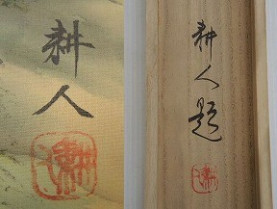 耕人
耕人題